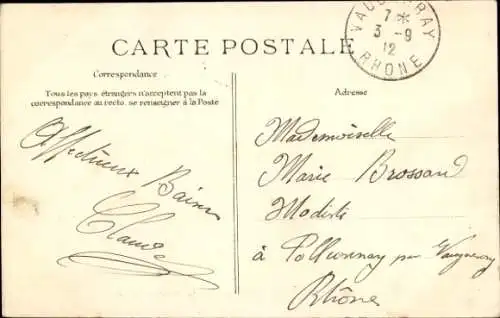 CARTE POSTALE
VAUGNERAY
7 *
3 - 9
12
RHONE
Correspondance
Tous les pays étrangers n'acceptent pas la
correspondance au recto, se renseigner à la Poste
Affectueux Baisers
Claude
Adresse
Mademoiselle
Marie Brossard
Modiste
à Pollionnay par Vaugneray
Rhône